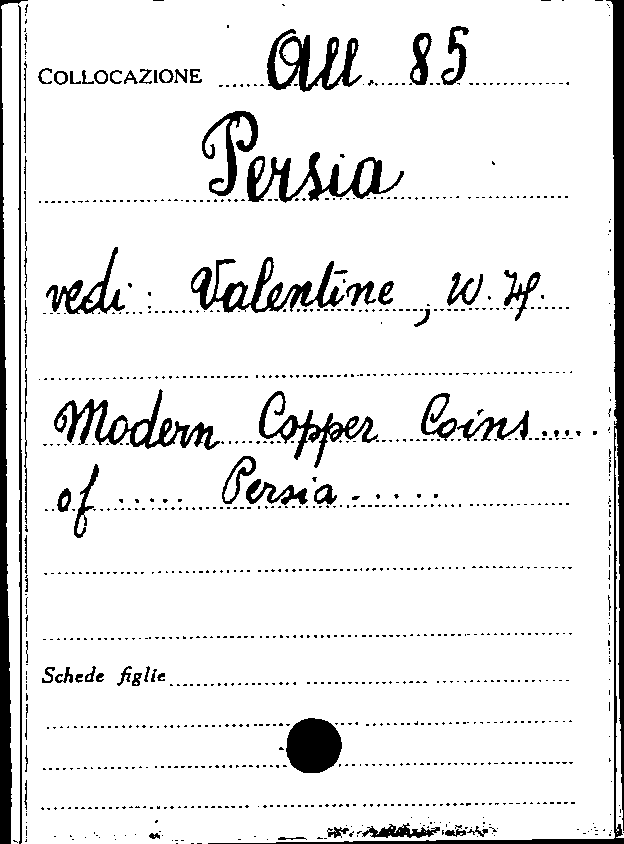 COLLOCAZIONE All. 85
Persia
vedi: Valentine, W. H.
Modern Copper Coins.....
of ..... Persia .....
Schede figlie